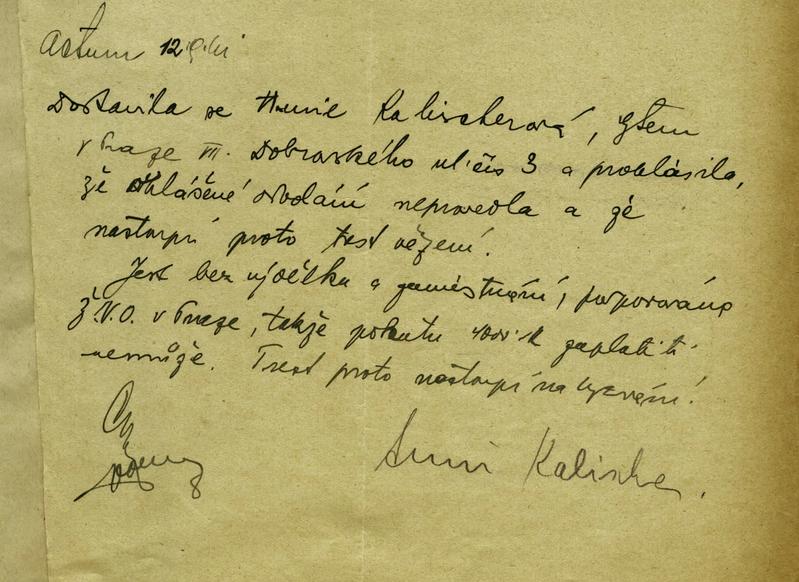 Actum 12.9.
Dostavila se Kalischerová, bytem
v Praze III. Dobrovského ulice 3 a prohlásila,
že ohlášené odvolání neprovedla a že
nastoupí proto trest vězení.
Jest bez výdělku a zaměstnání, podporována
Ž.N.O. v Praze, takže pokutu K zaplatiti
nemůže. Trest proto nastoupí na vyzvání.
Kalischer.